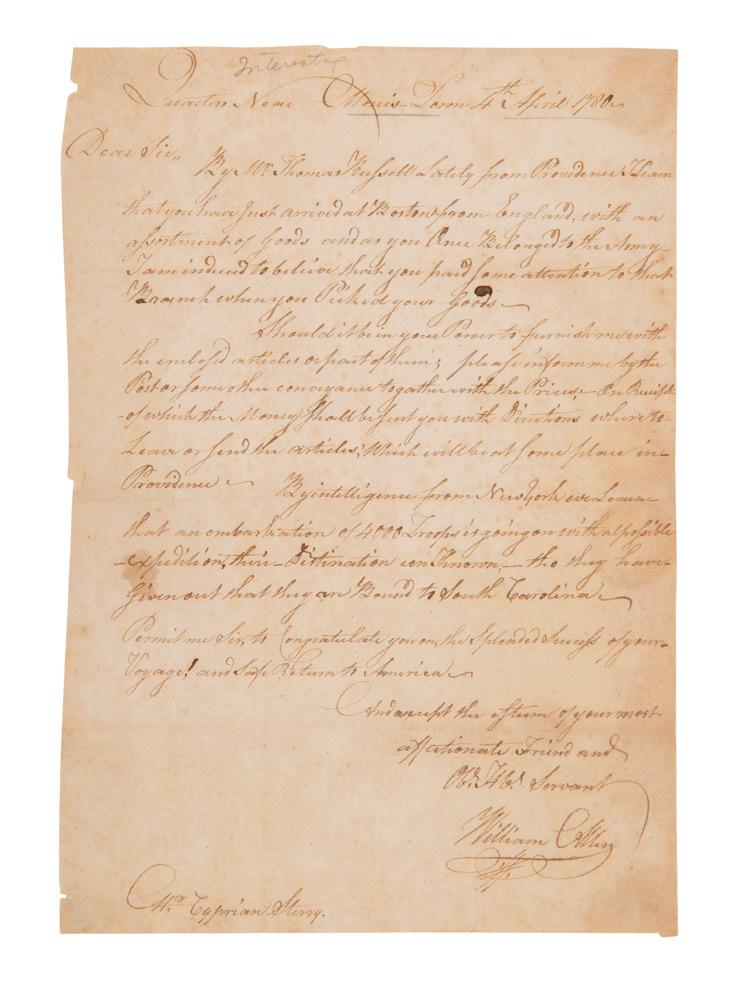 Interesting
Quarters Near Morris Town 4th April 1780
Dear Sir,,
By Mr. Thomas Russell Lately from Providence I Learn
that you have Just arrived at Boston from England, with an
assortment of Goods and as you Once Belonged to the Army
I am induced to believe that you paid some attention to that
Branch when you Picked your Goods
Should it be in your Power to furnish me with
the enclosed articles or part of them; please inform me by the
Post or some other conveyance together with the Prices; On Receipt
of which the Money Shall be sent you with Directions where to
Leave or send the articles; Which will be at some place in
Providence By intelligence from New York we Learn
that an embarkation of 4000 Troops is going on with al possible
expedition, their Distination un Known, tho they have
Given out that they are Bound to South Carolina
Permit me Sir, to Congratulate you on the Splended Success of your
Voyage! and Safe Return to America
And accept the esteem of your most
affectionate Friend and
Obt. Hbl. Servant
William Allen
Mr. Cyprian Sterry.